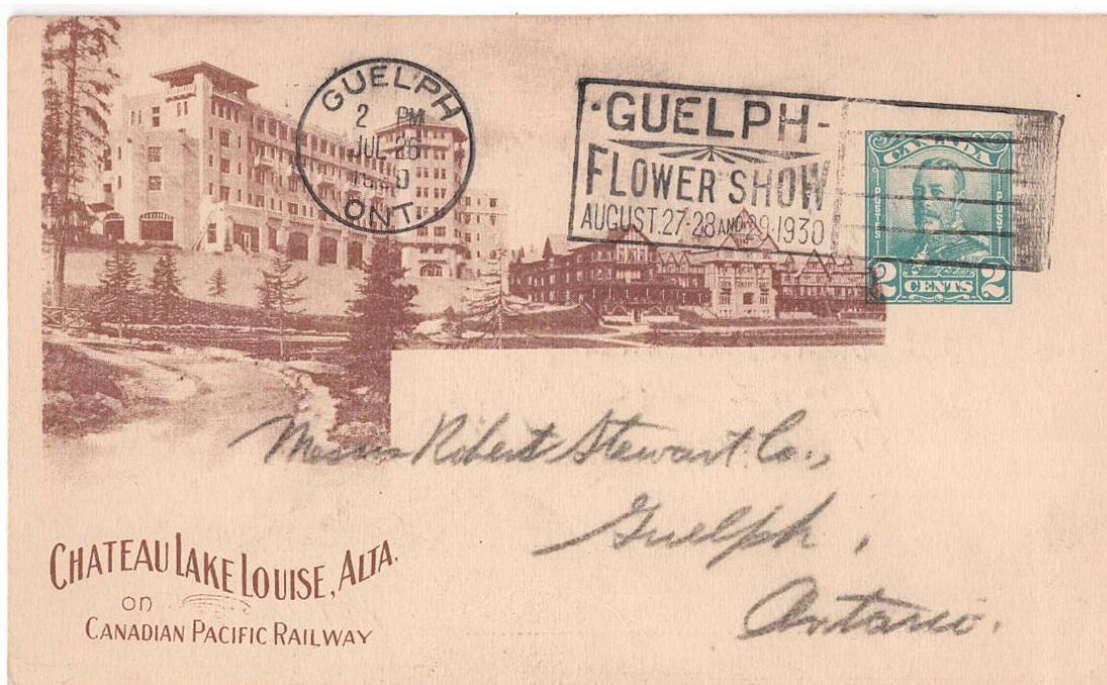 GUELPH
2 PM
JUL 26
1930
ONT.
-GUELPH-
FLOWER SHOW
AUGUST.27-28 AND 29.1930
CANADA
POSTES
POST
2 CENTS 2
Messrs Robert Stewart Co.,
Guelph,
Ontario.
CHATEAU LAKE LOUISE, ALTA.
on
CANADIAN PACIFIC RAILWAY